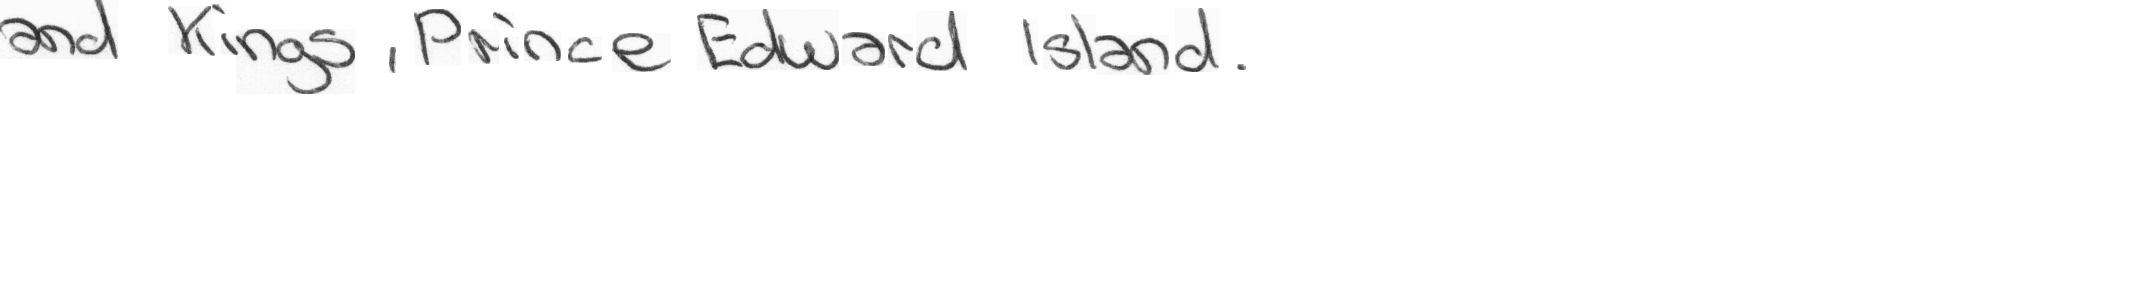 and Kings, Prince Edward Island.